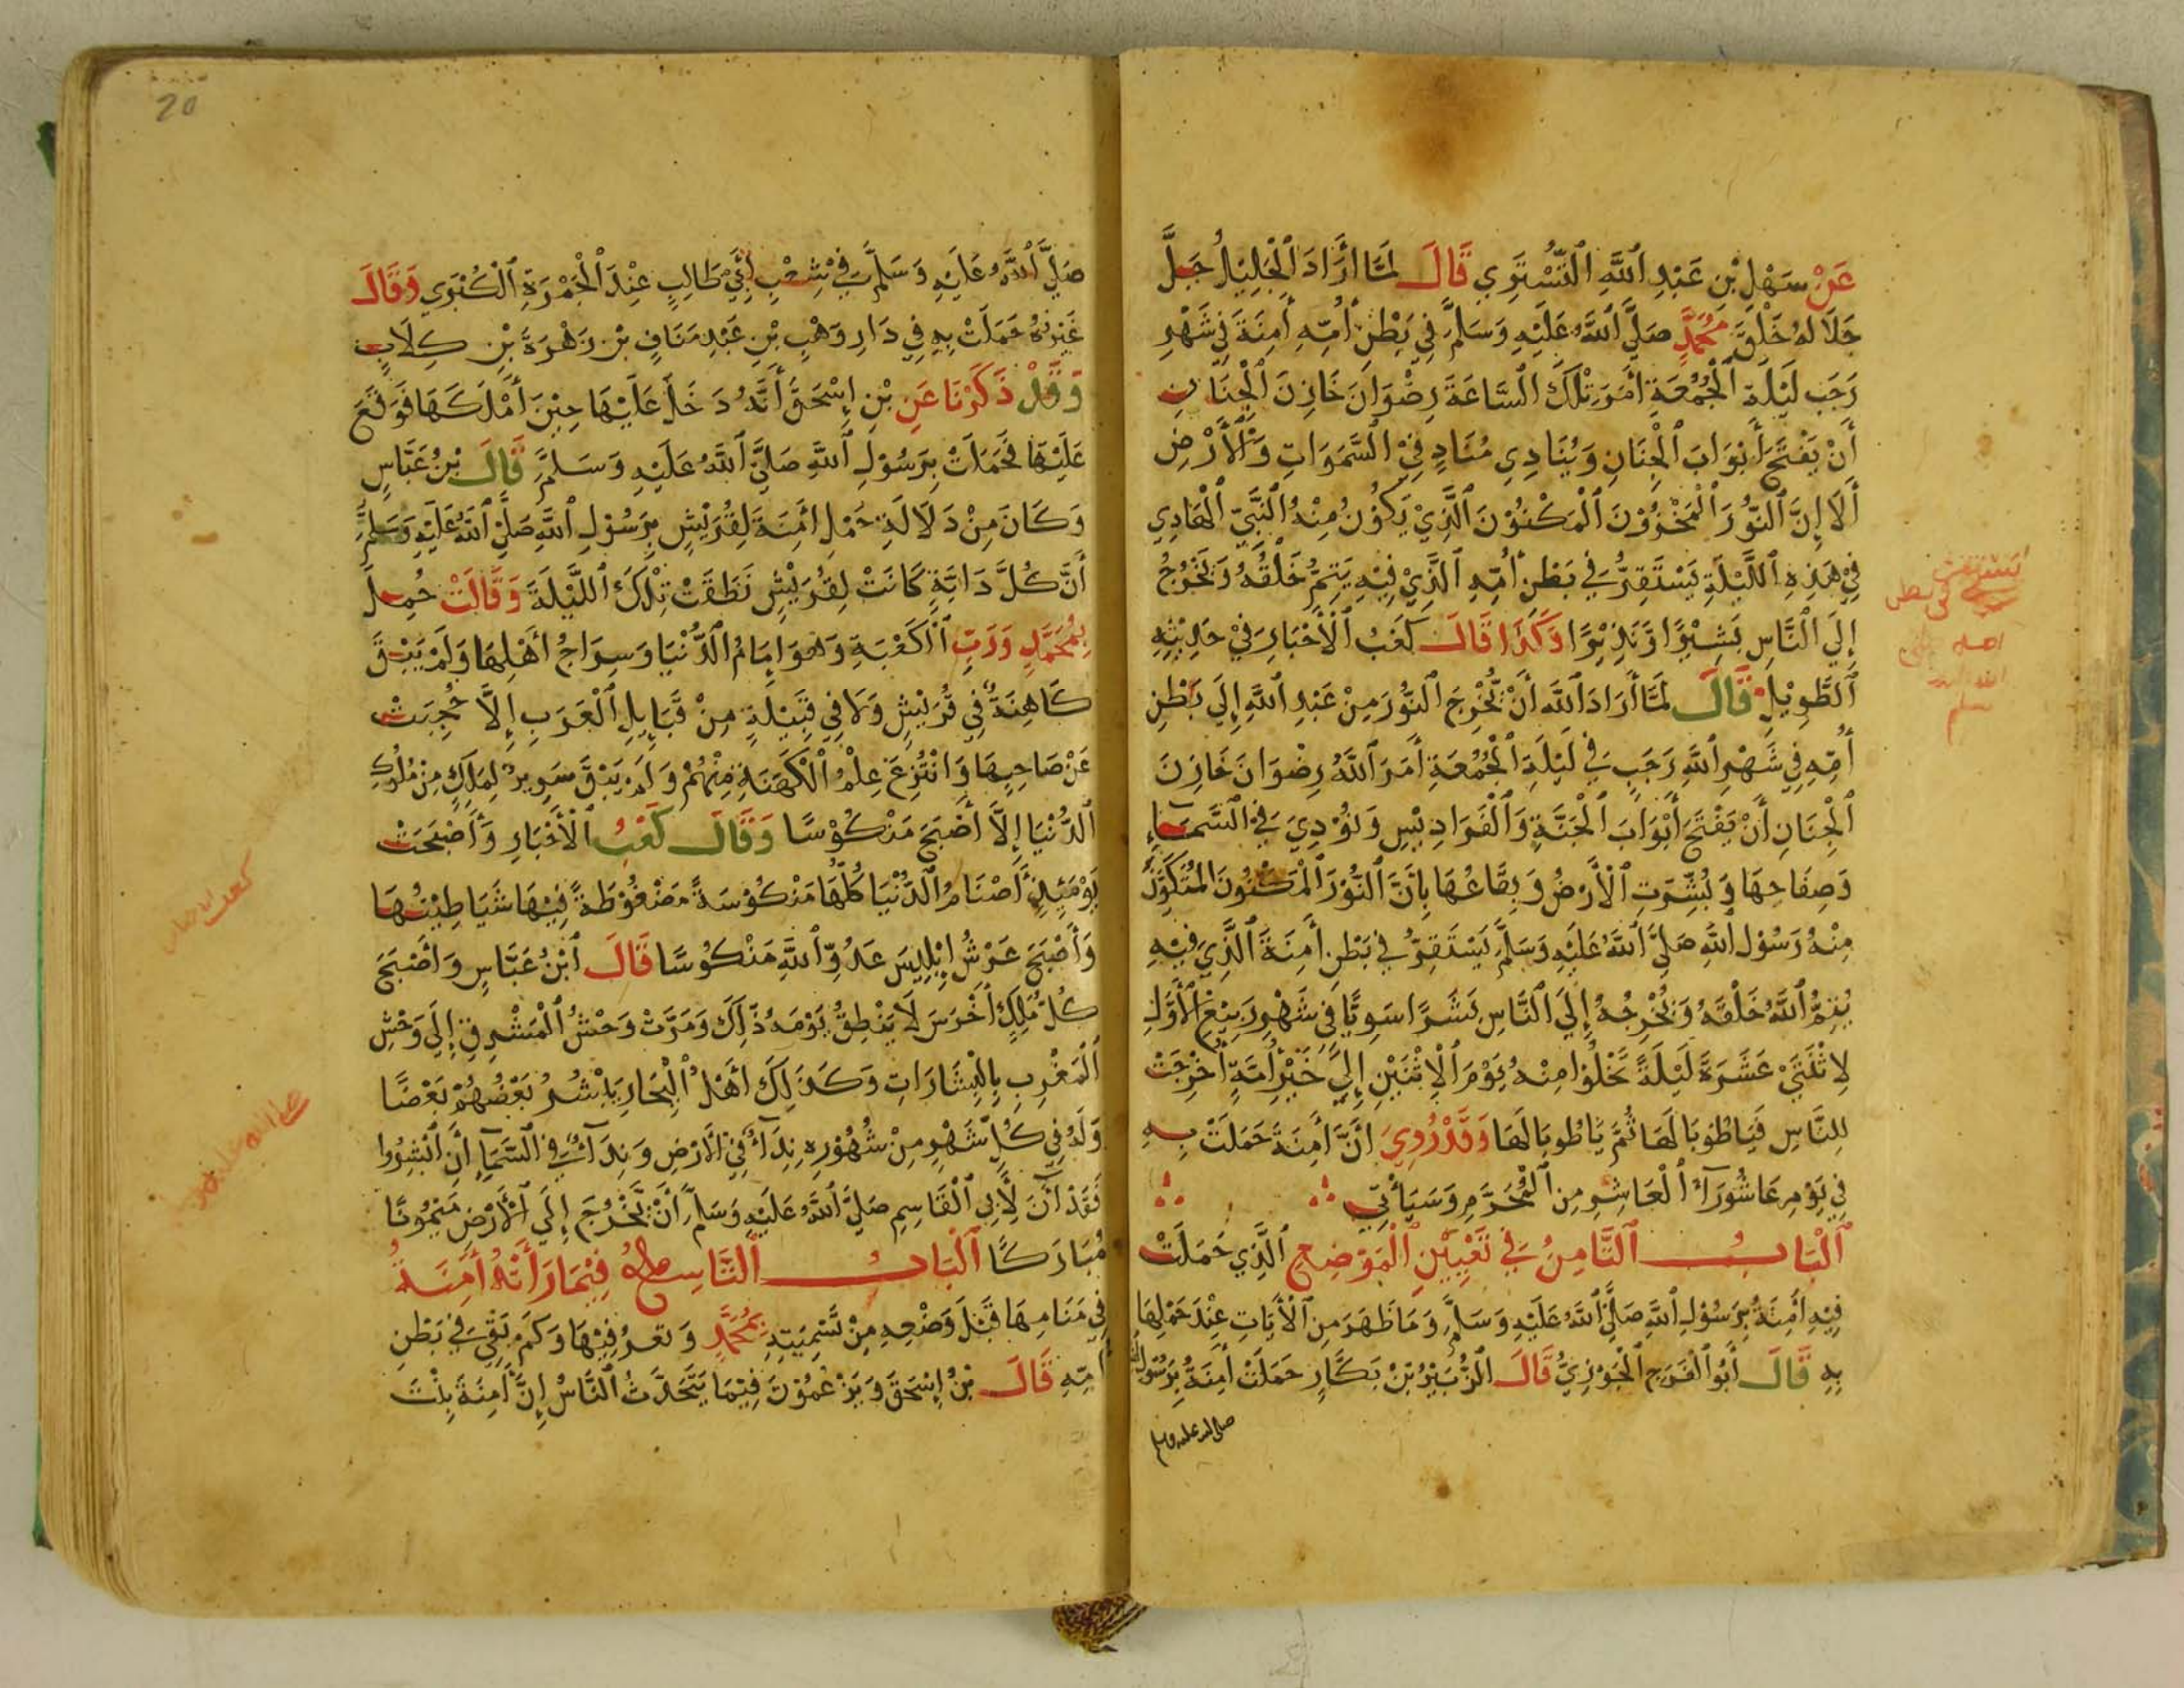 عَنْ سَهْلِ بْنِ عَبْدِ اللَّهِ التُّسْتَرِي قَالَ لَمَّا أَرَادَ الْجَلِيْلُ جَلَّ
جَلَالُهُ خَلْقَ مُحَمَّدٍ صَلَّى اللَّهُ عَلَيْهِ وَسَلَّمَ فِي بَطْنِ أُمِّهِ أَمِنَةَ فِي شَهْرِ
رَجَبٍ لَيْلَةَ الْجُمُعَةِ أَمَرَ تِلْكَ السَّاعَةَ رِضْوَانَ خَازِنَ الْجِنَانِ
أَنْ يَفْتَحَ أَبْوَابَ الْجِنَانِ وَيُنَادِي مُنَادٍ فِي السَّمَوَاتِ وَالْأَرْضِ
أَلَا إِنَّ النُّوْرَ الْمَخْزُوْنَ الْمَكْنُوْنَ الَّذِيْ يَكُوْنُ مِنْهُ النَّبِيّ الْهَادِي
فِي هَذِهِ اللَّيْلَةِ يَسْتَقِرُّ فِي بَطْنِ أُمِّهِ الَّذِيْ فِيْهِ يَتِمُّ خَلْقُهُ وَيَخْرُجُ
إِلَى النَّاسِ بَشِيْرًا وَنَذِيْرًا وَكَذَا قَالَ كَعْبُ الْأَخْبَارِ فِيْ حَدِيْثِهِ
الطَّوِيْلِ قَالَ لَمَّا أَرَادَ اللَّهُ أَنْ يُخْرِجَ النُّوْرَ مِنْ عَبْدِ اللَّهِ إِلَى بَطْنِ
أُمِّهِ فِي شَهْرِ اللَّهِ رَجَبٍ فِي لَيْلَةِ الْجُمُعَةِ أَمَرَ اللَّهُ رِضْوَانَ خَازِنَ
الْجِنَانِ أَنْ يَفْتَحَ أَبْوَابَ الْجَنَّةِ وَالْفَرَادِيْسِ وَنُوْدِيَ فِي السَّمَاءِ
وَصِفَاحِهَا وَبُشِّرَتِ الْأَرْضُ وَبِقَاعُهَا بِأَنَّ النُّوْرَ الْمَكْنُوْنَ الْمُتَكَوِّنَ
مِنْهُ رَسُوْلُ اللَّهِ صَلَّى اللَّهُ عَلَيْهِ وَسَلَّمَ يَسْتَقِرُّ فِي بَطْنِ أَمِنَةَ الَّذِي فِيْهِ
يُتِمُّ اللَّهُ خَلْقَهُ وَيُخْرِجُهُ إِلَى النَّاسِ بَشَرًا سَوِيًّا فِي شَهْرِ رَبِيْعِ الْأَوَّلِ
لِاثْنَتَيْ عَشَرَةَ لَيْلَةً تَخْلُوْا مِنْهُ يَوْمَ الْاِثْنَيْنِ إِلَى خَيْرِ أُمَّةٍ أُخْرِجَتْ
لِلنَّاسِ فَيَاطُوبَا لَهَا ثُمَّ يَاطُوبَا لَهَا وَقَدْ رُوِيَ أَنَّ أَمِنَةَ حَمَلَتْ بِهِ
فِي يَوْمِ عَاشُوْرَآءَ الْعَاشِرِ مِنَ الْمُحَرَّمِ وَسَيَأْتِيْ
الْبَابُ الثَّامِنُ فِي تَعْيِيْنِ الْمَوْضِعِ الَّذِي حَمَلَتْ
فِيْهِ أَمِنَةُ بِرَسُوْلِ اللَّهِ صَلَّى اللَّهُ عَلَيْهِ وَسَلَّمَ وَمَا ظَهَرَ مِنَ الْأَيَاتِ عِنْدَ حَمْلِهَا
بِهِ قَالَ أَبُو الْفَرَجِ الْجَوْزِيُّ قَالَ الزُّبَيْرُ بْنُ بَكَّارٍ حَمَلَتْ أَمِنَةُ بِرَسُوْلِ اللَّهِ
صلى الله عليه وسلم
يستقر
في بطن
امه
20
صَلَّى اللَّهُ عَلَيْهِ وَسَلَّمَ فِي شِعْبِ أَبِيْ طَالِبٍ عِنْدَ الْجَمْرَةِ الْكُبْرَي وَقَالَ
غَيْرُهُ حَمَلَتْ بِهِ فِي دَارِ وَهْبِ بْنِ عَبْدِ مَنَافِ بْنِ زَهْرَةَ بْنِ كِلَابٍ
وَقَدْ ذَكَرْنَا عَنِ بْنِ إِسْحَقَ أَنَّهُ دَخَلَ عَلَيْهَا حِيْنَ أَمْلَكَهَا فَوَقَعَ
عَلَيْهَا فَحَمَلَتْ بِرَسُوْلِ اللَّهِ صَلَّى اللَّهُ عَلَيْهِ وَسَلَّمَ قَالَ بْنُ عَبَّاسٍ
وَكَانَ مِنْ دَلَالَةِ حَمْلِ أَمِنَةَ لِقُرَيْشٍ بِرَسُوْلِ اللَّهِ صَلَّى اللَّهُ عَلَيْهِ وَسَلَّمَ
أَنَّ كُلَّ دَابَّةٍ كَانَتْ لِقُرَيْشٍ نَطَقَتْ تِلْكَ اللَّيْلَةَ وَقَالَتْ حُمِلَ
بِمُحَمَّدٍ وَرَبِّ الْكَعْبَةِ وَهُوَ إِمَامُ الدُّنْيَا وَسِرَاجُ أَهْلِهَا وَلَمْ يَبْقَ
كَاهِنَةٌ فِي قُرَيْشٍ وَلَا فِي قَبِيْلَةٍ مِنْ قَبَايِلِ الْعَرَبِ إِلَّا حُجِبَتْ
عَنْ صَاحِبِهَا وَانْتُزِعَ عِلْمُ الْكَهَنَةِ مِنْهُمْ وَلَمْ يَبْقَ سَرِيرٌ لِمَلِكٍ مِنْ مُلُوكِ
الدُّنْيَا إِلَّا أَصْبَحَ مَنْكُوْسًا وَقَالَ كَعْبُ الْأَخْبَارِ وَأَصْبَحَتْ
يَوْمَئِذٍ أَصْنَامُ الدُّنْيَا كُلُّهَا مَنْكُوْسَةً مَضْغُوْطَةً فِيْهَا شَيَاطِيْنُهَا
وَأَصْبَحَ عَرْشُ إِبْلِيسَ عَدُوِّ اللَّهِ مَنْكُوْسًا قَالَ ابْنُ عَبَّاسٍ وَأَصْبَحَ
كُلُّ مَلِكٍ أَخْرَسَ لَا يَنْطِقُ يَوْمَهُ ذَلِكَ وَمَرَّتْ وَحْشُ الْمَشْرِقِ إِلَى وَحْشِ
الْمَغْرِبِ بِالْبِشَارَاتِ وَكَذَلِكَ أَهْلُ الْبِحَارِ يُبَشِّرُ بَعْضُهُمْ بَعْضًا
وَلَهُ فِي كُلِّ شَهْرٍ مِنْ شُهُوْرِهِ نِدَآءٌ فِي الْأَرْضِ وَنِدَآءٌ فِي السَّمَآءِ أَنْ أَبْشِرُوا
فَقَدْ آنَ لِأَبِي الْقَاسِمِ صَلَّى اللَّهُ عَلَيْهِ وَسَلَّمَ أَنْ يَخْرُجَ إِلَى الْأَرْضِ مَيْمُونًا
مُبَارَكًا الْبَابُ التَّاسِعُ فِيْمَا رَأَتْهُ أَمِنَةُ
فِي مَنَامِهَا قَبْلَ وَضْعِهِ مِنْ تَسْمِيَتِهِ بِمُحَمَّدٍ وَتَعْرِفِيْهَا وَكَمْ بَقِيَ فِي بَطْنِ
أُمِّهِ قَالَ بْنُ إِسْحَقَ وَيَزْعُمُوْنَ فِيْمَا يَتَحَدَّثُ النَّاسُ إِنَّ أَمِنَةَ بِنْتَ
كعب الاخبار
صلى الله عليه وسلم